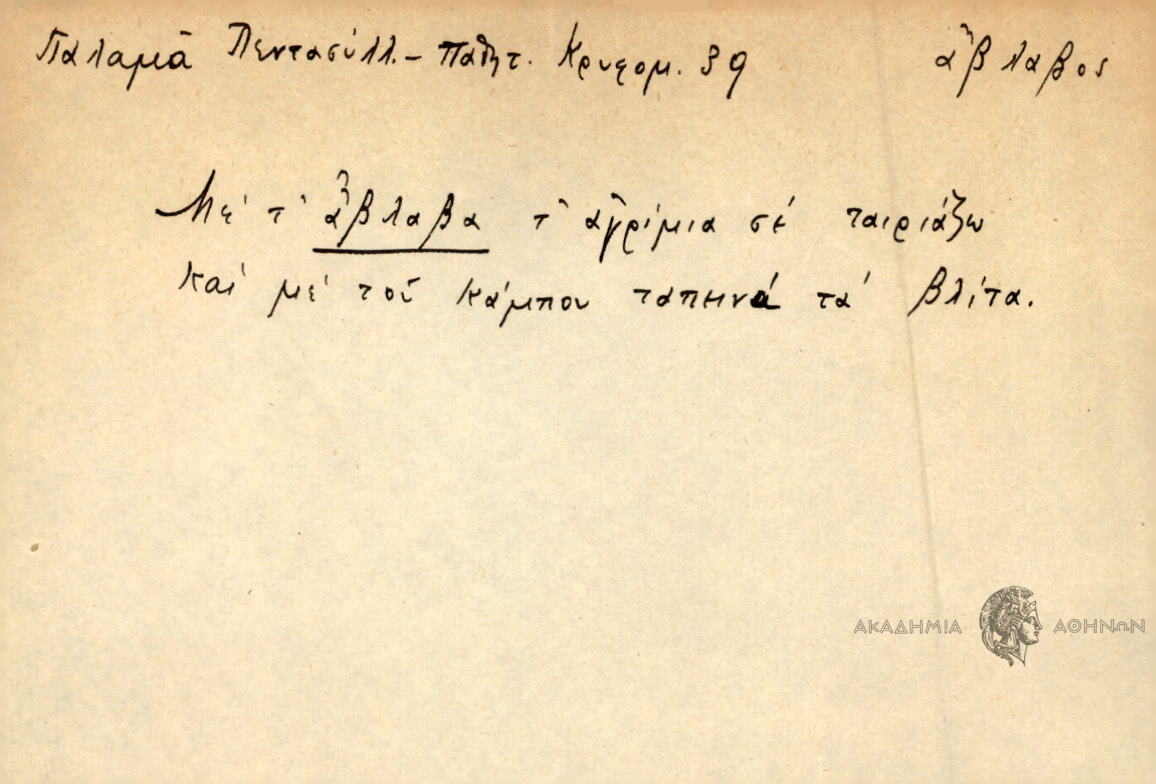 Παλαμᾶ Πεντασύλλ. – Παθητ. Κρυφομ. 39 ἄβλαβος
Μὲ τ' ἄβλαβα τ' ἀγρίμια σὲ ταιριάζω
καὶ μὲ τοῦ κάμπου ταπεινὰ τὰ βλίτα.
ΑΚΑΔΗΜΙΑ ΑΘΗΝΩΝ